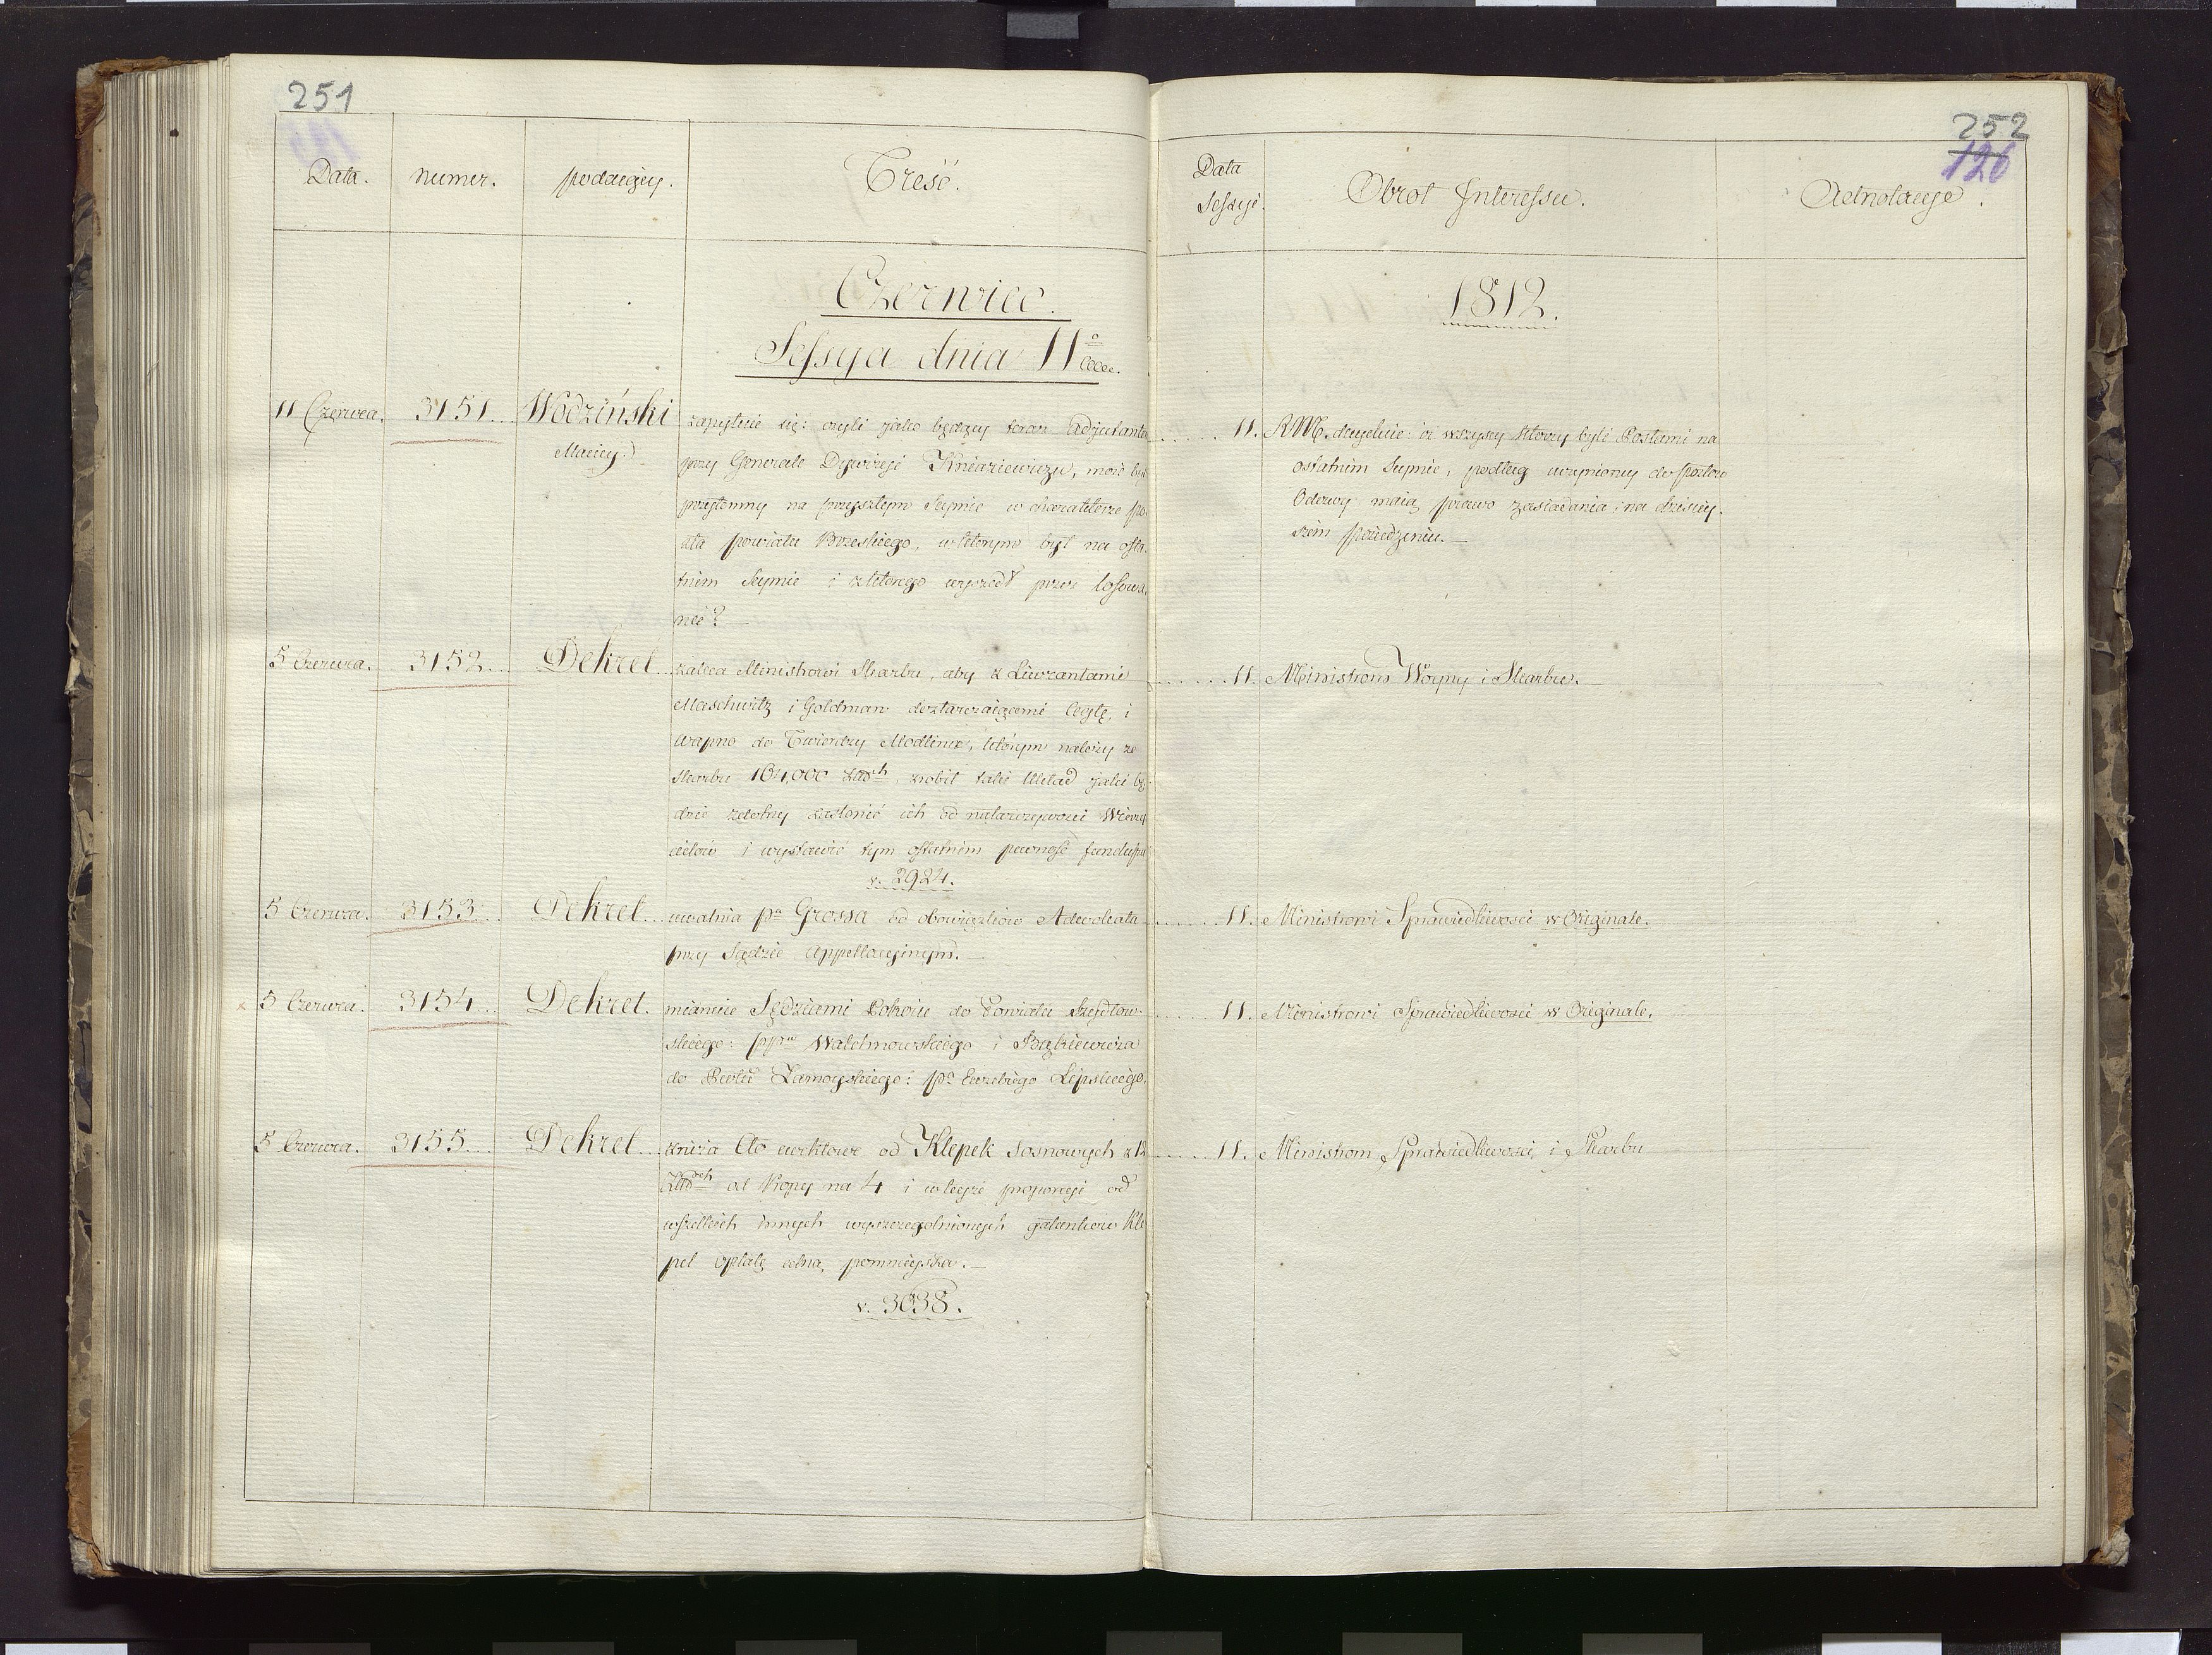 251
Data. numer. podaięcy. Treść.
Czerwiec.
Sessya dnia 11º
11 Czerwca. 3151... Wodziński zapytuie się: czyli jako będący teraz Adjutante
Maciey.) przy Generale Dywizyi Kniaziewiczu, może być
przytomny na przyszłym Seymie w charakterze po-
sła powiatu Brzeskiego, w którym był na osta-
tnim Seymie i z którego wyszedł przez losowa-
nie? —
5 Czerwca. 3152... Dekret... zaleca Ministrowi Skarbu, aby z Liwrantami
Maschwitz i Goldman dostarczaiącemi Cegłę, i
wapno do Twierdzy Modlina, którym należy ze
Skarbu 164,000 złłch, zrobił taki układ jaki bę-
dzie zdolny zasłonić ich od natarczywości Wierzy
cielów i wystawić tym ostatnim pewność funduszu
v. 2924.
5 Czerwca. 3153... Dekret... uwalnia pa Grossa od obowiązków Adwokata
przy Sądzie Appellacyinym. —
5 Czerwca. 3154... Dekret. mianuie Sędziami Pokoiu do Powiatu Szydłow-
skiego: ppów Walchnowskiego i Bąkiewicza
do Pwtu Zamoyskiego: pa Euzebiego Lipskiego.
5 Czerwca. 3155... Dekret... zniża Cło od Klepek sosnowych z 12
złłch od Kopy na 4 i w teyże proporcyi od
wszelkich innych wyszczególnionych gatunków Kle
pek opłatę celną pomnieysza. —
v. 3038.
252
126
Data Sessyi. Obrot Interessu. Adnotacye.
1812.
11. RM. decyduie: iż wszyscy którzy byli Posłami na
ostatnim Seymie, podług uczynioney do Posłów
Odezwy maią prawo zasiadania i na dzisiey-
szem posiedzeniu. —
11. Ministrom Woyny i Skarbu. —
11. Ministrowi Sprawiedliwości w Originale.
11. Ministrowi Sprawiedliwości w Originale.
11. Ministrom Sprawiedliwości i Skarbu